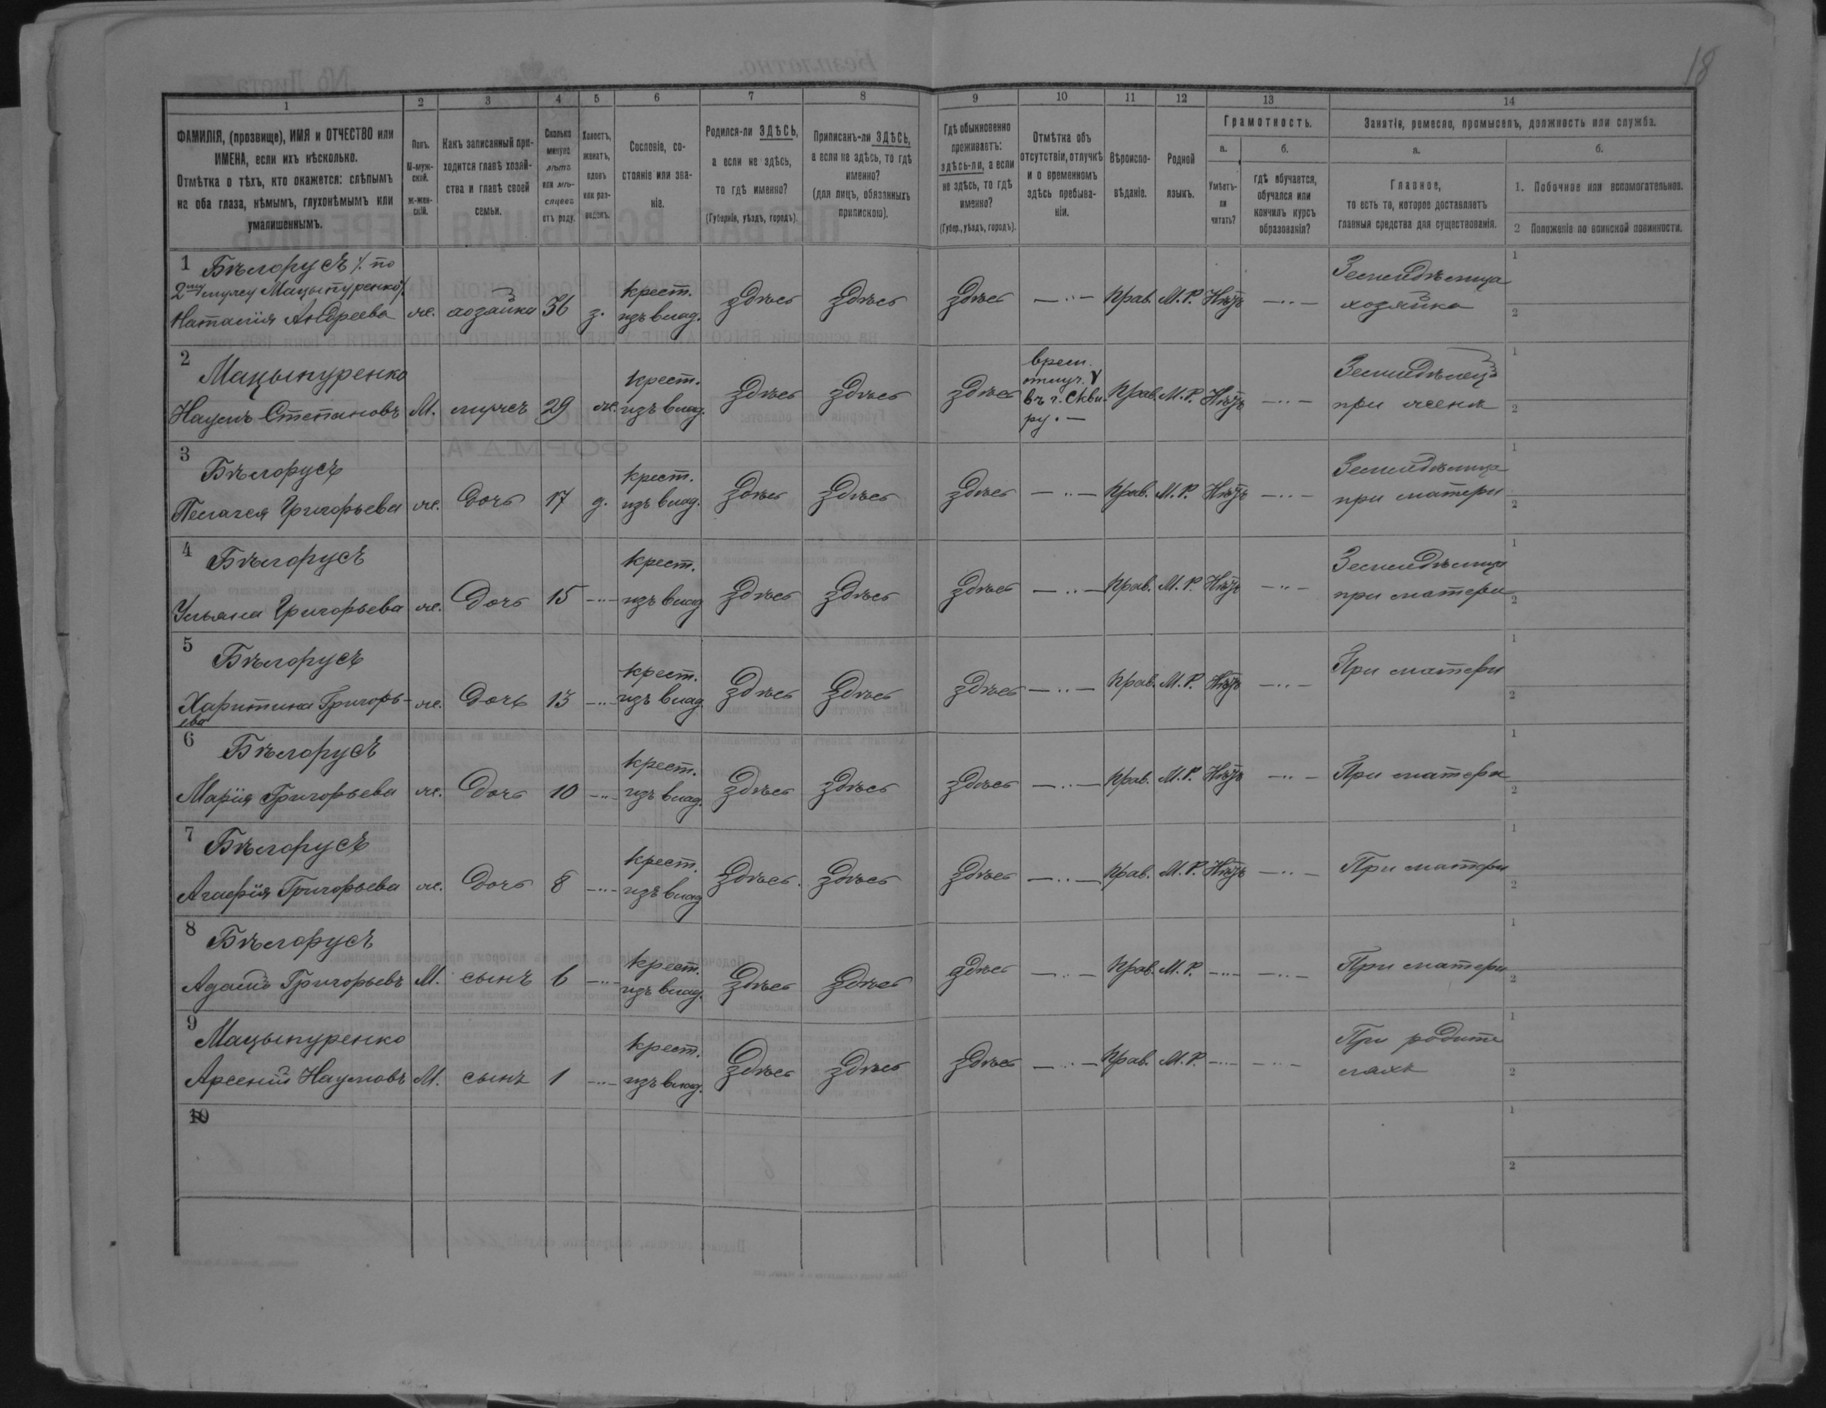 18
1 2 3 4 5 6 7 8 9 10 11 12 13 14
ФАМИЛІЯ, (прозвище), ИМЯ и ОТЧЕСТВО или
ИМЕНА, если ихъ нѣсколько.
Отмѣтка о тѣхъ, кто окажется: слѣпымъ
на оба глаза, нѣмымъ, глухонѣмымъ или
умалишеннымъ.
Полъ.
М-муж-
ской.
ж-жен-
скій.
Какъ записанный при-
ходится главѣ хозяй-
ства и главѣ своей
семьи.
Сколько
минуло
лѣтъ
или мѣ-
сяцевъ
отъ роду.
Холостъ,
женатъ,
вдовъ
или раз-
веденъ.
Сословіе, со-
стояніе или зва-
ніе.
Родился-ли ЗДѢСЬ,
а если не здѣсь,
то гдѣ именно?
(Губернія, уѣздъ, городъ).
Приписанъ-ли ЗДѢСЬ,
а если не здѣсь, то гдѣ
именно?
(для лицъ, обязанныхъ
припискою).
Гдѣ обыкновенно
проживаетъ:
здѣсь-ли, а если
не здѣсь, то гдѣ
именно?
(Губер., уѣздъ, городъ).
Отмѣтка объ
отсутствіи, отлучкѣ
и о временномъ
здѣсь пребыва-
ніи.
Вѣроиспо-
вѣданіе.
Родной
языкъ.
Грамотность.
а.
Умѣетъ-
ли
читать?
б.
гдѣ обучается,
обучался или
кончилъ курсъ
образованія?
Занятія, ремесло, промыселъ, должность или служба.
а.
Главное,
то есть то, которое доставляетъ
главныя средства для существованія.
б.
1. Побочное или вспомогательное.
2 Положеніе по воинской повинности.
1 Бѣлорусъ /по
2му мужу Мацыпуренко/
Наталія Андреева
же. хозяйка 36 з.
крест.
изъ влад.
Здѣсь Здѣсь Здѣсь — ·· — Прав. М.Р. Нѣтъ — ·· —
Земледѣлица
хозяйка
1
2
2 Мацыпуренко
Наумъ Степановъ
М. мужъ 29 же.
крест.
изъ влад.
Здѣсь Здѣсь Здѣсь
врем.
отлуч.
въ г.Скви
ру. —
Прав. М.Р. Нѣтъ — ·· —
Земледѣлецъ
при женѣ
1
2
3 Бѣлорусъ
Пелагея Григорьева
же. Дочь 17 д.
крест.
изъ влад.
Здѣсь Здѣсь Здѣсь — ·· — Прав. М.Р. Нѣтъ — ·· —
Земледѣлица
при матери
1
2
4 Бѣлорусъ
Ульяна Григорьева
же. Дочь 15 — ·· —
крест.
изъ влад
Здѣсь Здѣсь Здѣсь — ·· — Прав. М.Р. Нѣтъ — ·· —
Земледѣлица
при матери
1
2
5 Бѣлорусъ
Харитина Григорь-
ева
же. Дочь 13 — ·· —
крест.
изъ влад
Здѣсь Здѣсь Здѣсь — ·· — Прав. М.Р. Нѣтъ — ·· —
При матери
1
2
6 Бѣлорусъ
Марія Григорьева
же. Дочь 10 — ·· —
крест.
изъ влад.
Здѣсь Здѣсь Здѣсь — ·· — Прав. М.Р. Нѣтъ — ·· —
При матери
1
2
7 Бѣлорусъ
Агафія Григорьева
же. Дочь 8 — ·· —
крест.
изъ влад
Здѣсь. Здѣсь Здѣсь — ·· — Прав. М.Р. Нѣтъ — ·· —
При матери
1
2
8 Бѣлорусъ
Адамъ Григорьевъ
М. сынъ 6 — ·· —
крест.
изъ влад.
Здѣсь Здѣсь Здѣсь — ·· — Прав. М.Р. — ·· — — ·· —
При матери
1
2
9 Мацыпуренко
Арсеній Наумовъ
М. сынъ 1 — ·· —
крест.
изъ влад.
Здѣсь Здѣсь Здѣсь — ·· — Прав. М.Р. — ·· — — ·· —
При родите
ляхъ
1
2
10
1
2